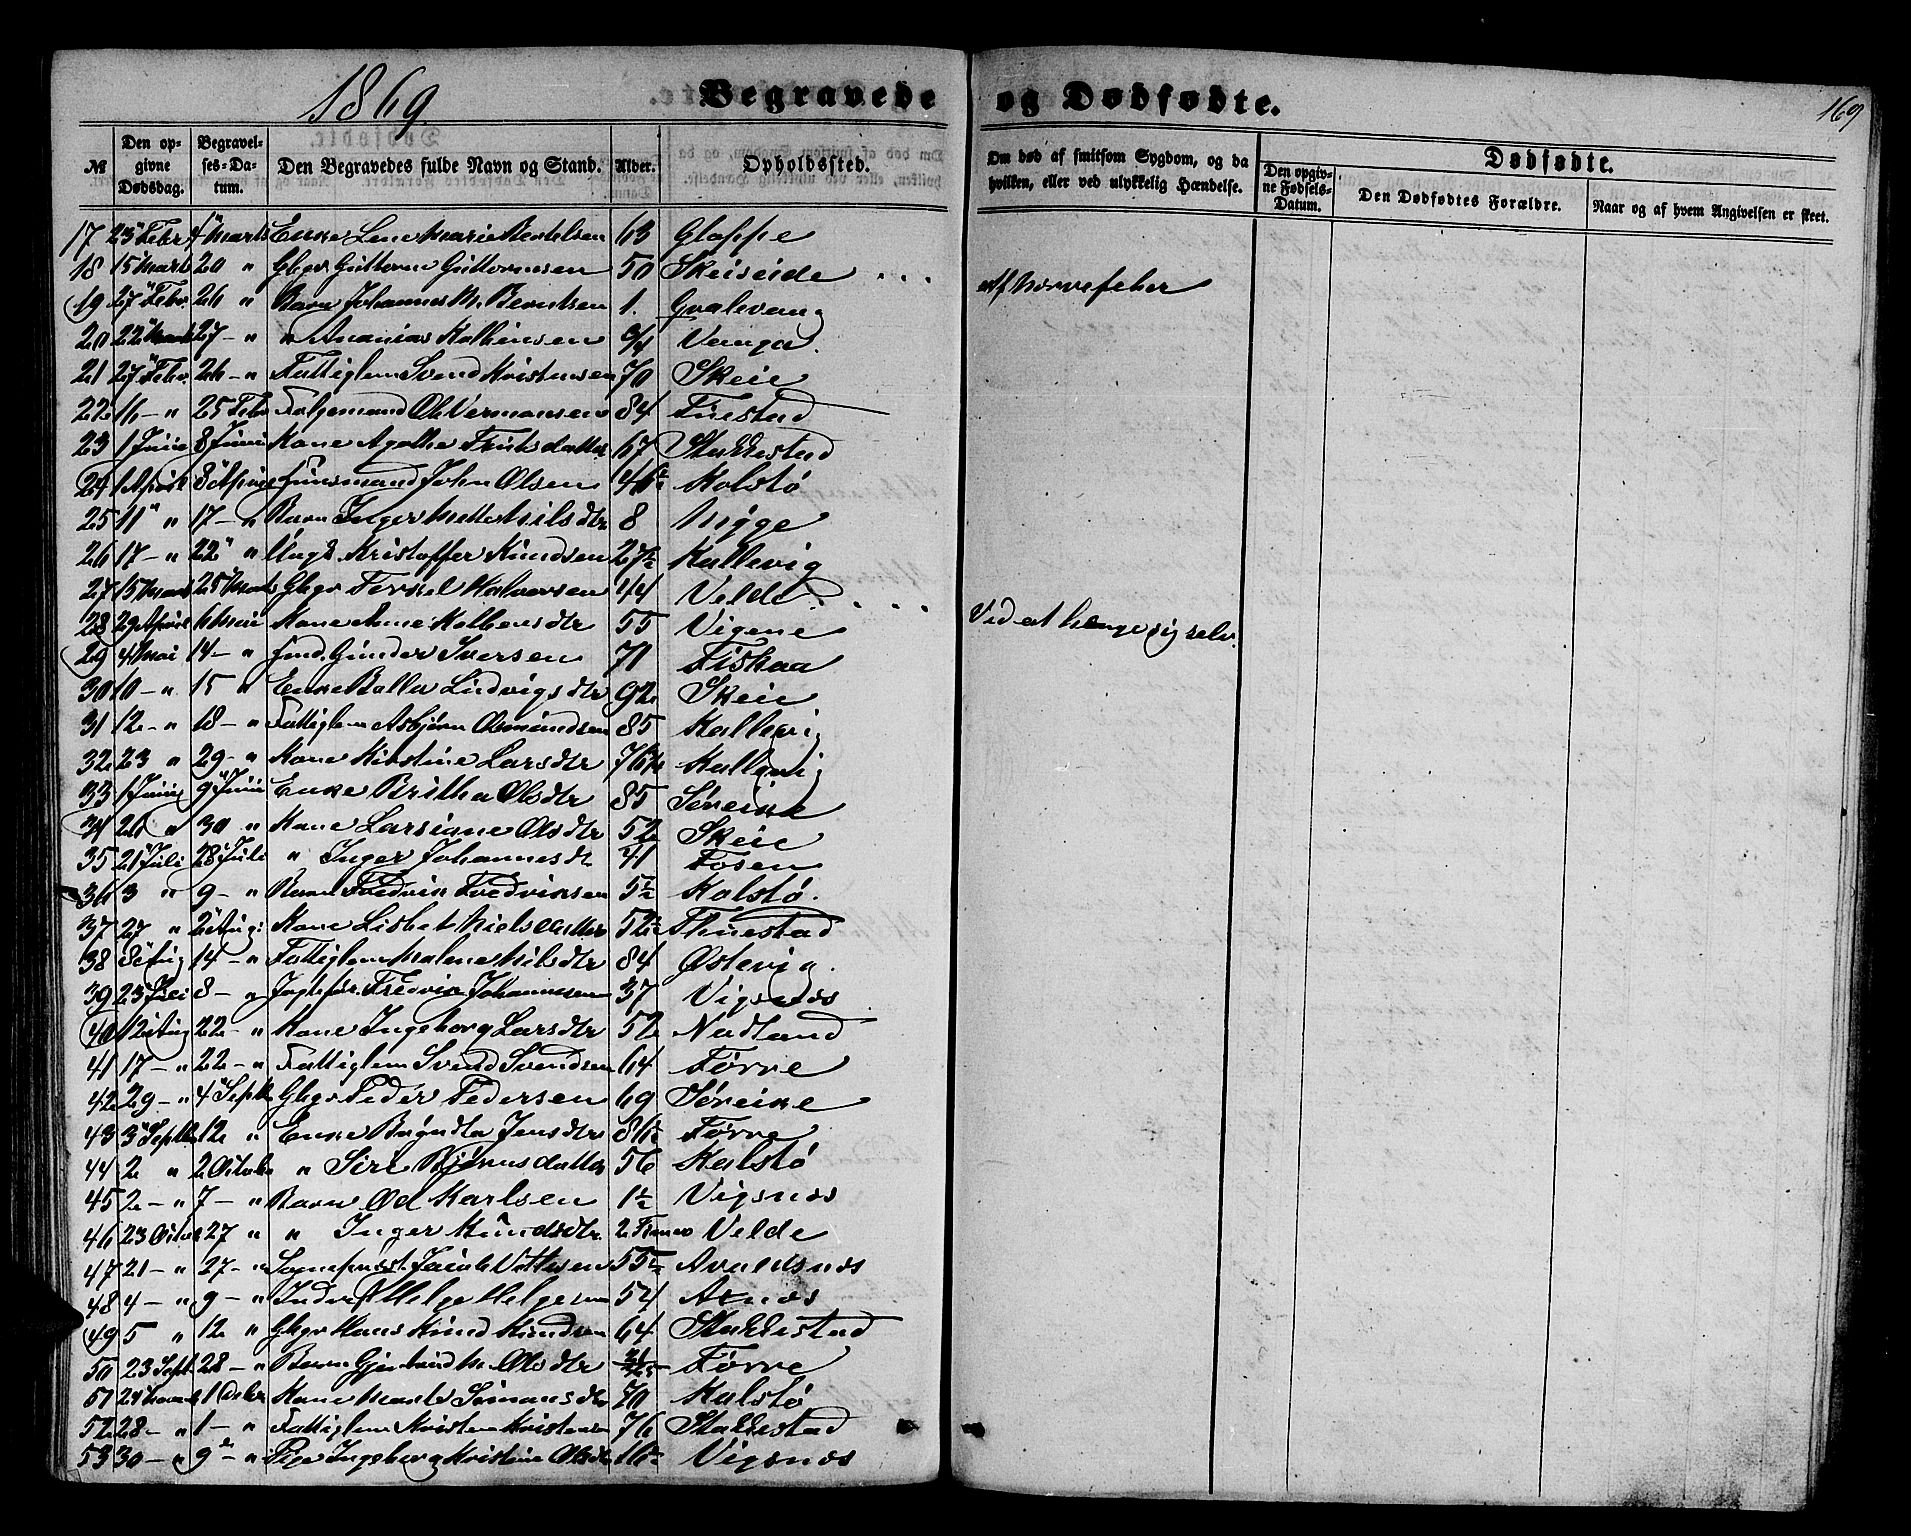 1869
Begravede og Dødfødte.
169
№ Den opgivne Dødsdag. Begravelses-Datum. Den Begravedes fulde Navn og Stand. Alder. Opholdssted. Om død af smitsom Sygdom, og da hvilken, eller ved ulykkelig Hændelse. Dødfødte.
Den opgivne Fødsels-Datum. Den Dødfødtes Forældre. Naar og af hvem Angivelsen er skeet.
17 23 Febr 1 Marts Enke Lene Marie Bertelsen 63 Gloppe
18 15 Marts 20 " Gbgr Guttorm Guttormsen 50 Skeiseide . . . af Nervefeber
19 27 Febr. 26 " Barn Johannes M. Berntsen 1. Gvalevaag
20 22 Marts 27 - " " Ananias Kolbensen Vaaga.
21 27 Febr. 26 - " Fattiglem Svend Kristensen 70 Skeie
22 16 - " 25 Febr Ole Vermonsen 84
23 1 Juni 8 Juni Kone Agathe 67 Stakkestad
24 1 April 8 April Huusmand John Olsen 46½ Kolstø
25 11 " " 17 - " Barn Inger Mette Nilsdtr 8 Nygge
26 17 - " 22 " " Ungk Kristoffer Knudsen 27½ Kallevig
27 15 Marts 25 Marts Gbgr Terkel Halvorsen 44 Velde . . . . Ved at hænge sig selv.
28 29 April 6 Mai Kone Anne Kolbensdtr 55 Vigene
29 4 Mai 14 - " Gunder Iversen 71 Fiskaa
30 10 - " 15 " Enke Ludvigsdtr 92 Skeie
31 12 - " 18 - " Fattiglem Asbjørn Osmundsen 85 Kallevig
32 23 " 29 - " Kone Kirstine Larsdtr 76 Kallevig
33 1 Juni 9 Juni Enke Britha Olsdtr 85 Søreike
34 26 " 30 " Kone Larsiane Olsdtr 52 Skeie
35 21 Juli 28 Juli " Inger Johannesdt 41 Fosen
36 3 " 9 - " Barn Fredrik Fredriksen 5½ Kolstø.
37 27 " 2 Aug: Kone Lisbet Nielsdatter 52½ Thuestad
38 8 Aug 14 - " Fattiglem Malene Nilsdtr 84 Østevig.
39 23 Juli 8 - " Fredrik Johannesen 37 Vigsnæs
40 12 Aug 22 - " Kone Ingeborg Larsdtr 52 Nadland
41 17 - " 22 - " Fattiglem Svend Svendsen 64 Førre
42 29 - " 4 Septbr Gbgr Peder Pedersen 69 Søreike
43 3 Septbr 12 " Enke Jensdtr 86½ Førre
44 2 " 2 Octobr " Siri Bjørnsdatter 56 Kalstø
45 2 - " 7 - " Barn Od Karlsen 1½ Vigsnæs
46 23 Octob 27 " " Inger Knudsdtr 2 Velde
47 21 - " 27 - " Sogneprest Jacob 55½ Avaldsnæs
48 4 - " 9 - " Indrst Helge Helgesen 54 Axnæs
49 5 " 12 " Gbgr Hans Knud Knudsen 64 Stakkestad
50 23 Sept 28 - " Barn Gjertrud M. Olsdtr Førre
51 24 Novemb 1 Decbr Kone Simonsdtr 70 Kalstø
52 28 - " 1 - " Fattiglem Kristen Kristensen 76 Stakkestad
53 30 - " 9 - " Pige Ingeborg Kristine Olsdtr 16½ Vigsnæs